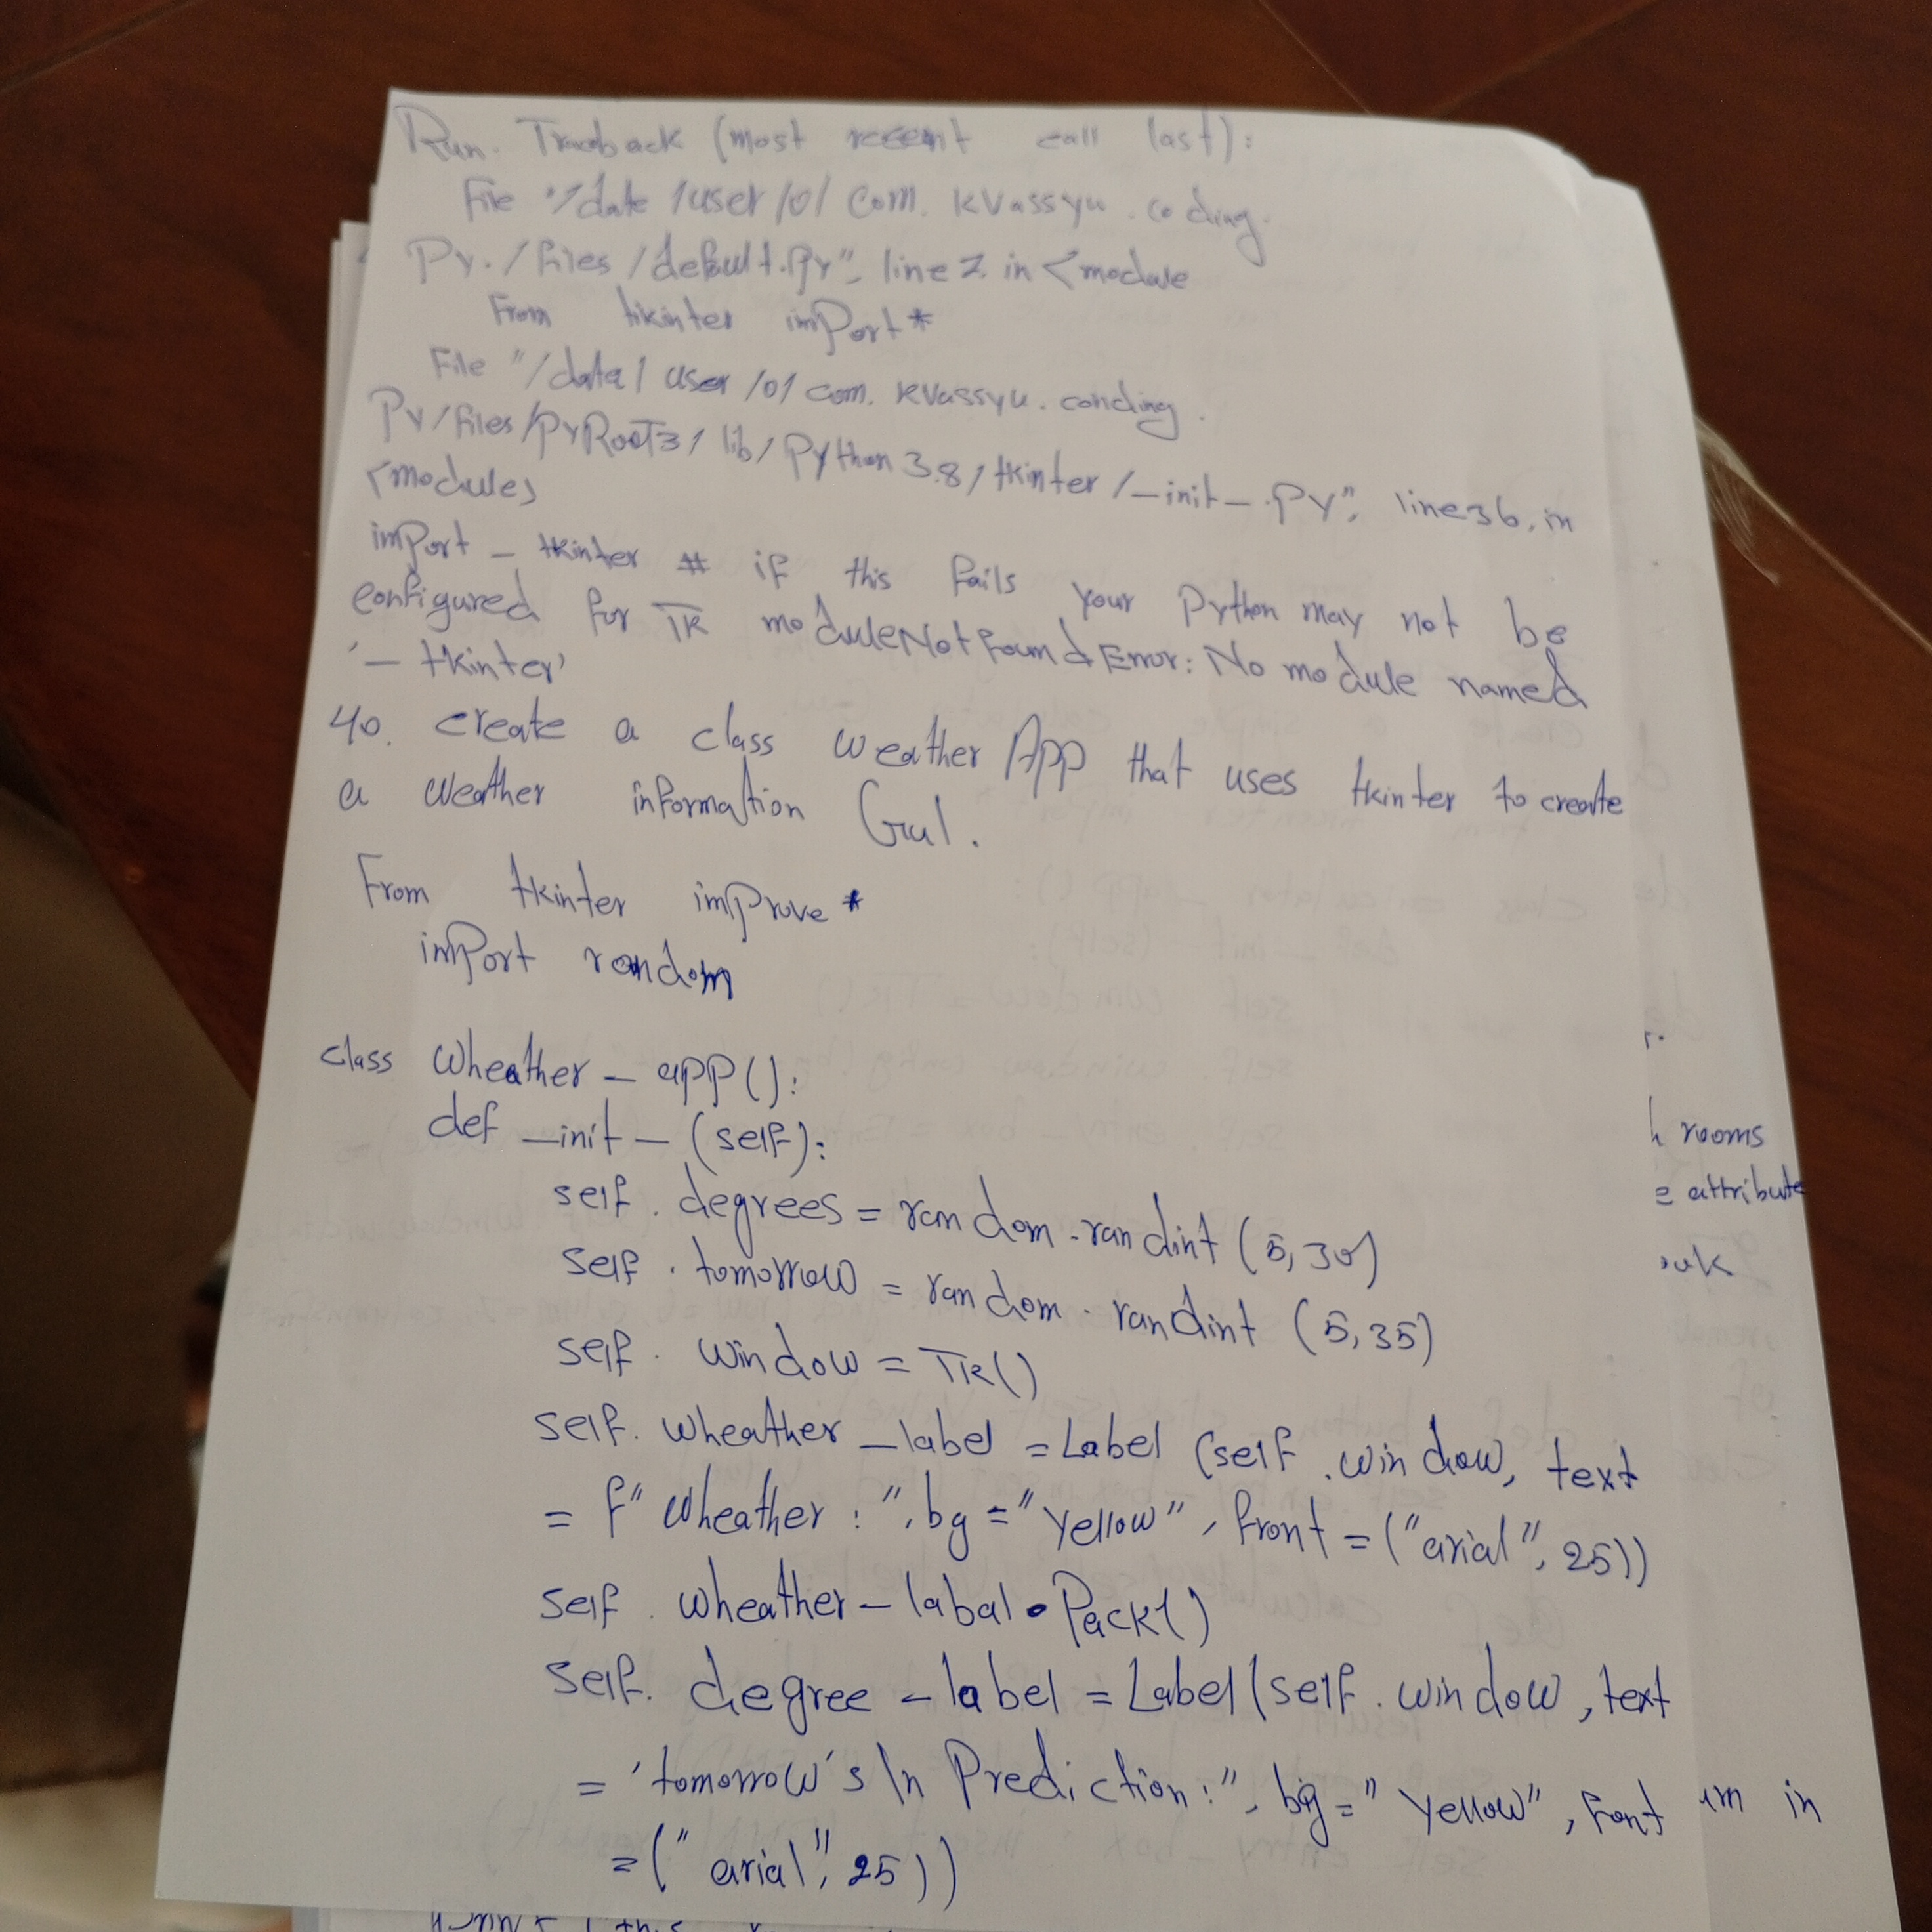 Run. Traceback (most recent call last):
File "/date /user /0/ com. kvassyu . co ding.
Py. /files /default.Py", line 2 in <module
From tkinter imPort *
File "/data/ user /0/ com. kvassyu. conding.
Py/files/PyRoot3/ lib/ Python 3.8/ tkinter /_init_.Py", line 36, in
<module>
imPort _ tkinter # if this fails your Python may not be
configured for TK moduleNotFoundError: No module named
'_ tkinter'
40. create a class weather App that uses tkinter to create
a weather information Gul.
From tkinter imProve *
imPort random
class wheather _ app():
def _init_ (self):
self . degrees = random .randint (5,30)
self . tomorrow = random . randint (5,35)
self . window = TK()
self. wheather _label = Label (self .window, text
= f" wheather : ", bg = "yellow", front = ("arial", 25))
self . wheather _ labal . Pack()
self. degree _ label = Label (self . window , text
= 'tomorrow's \n Prediction :", bg = " yellow" , font
= (" arial", 25))
r.
rooms
attribute
in